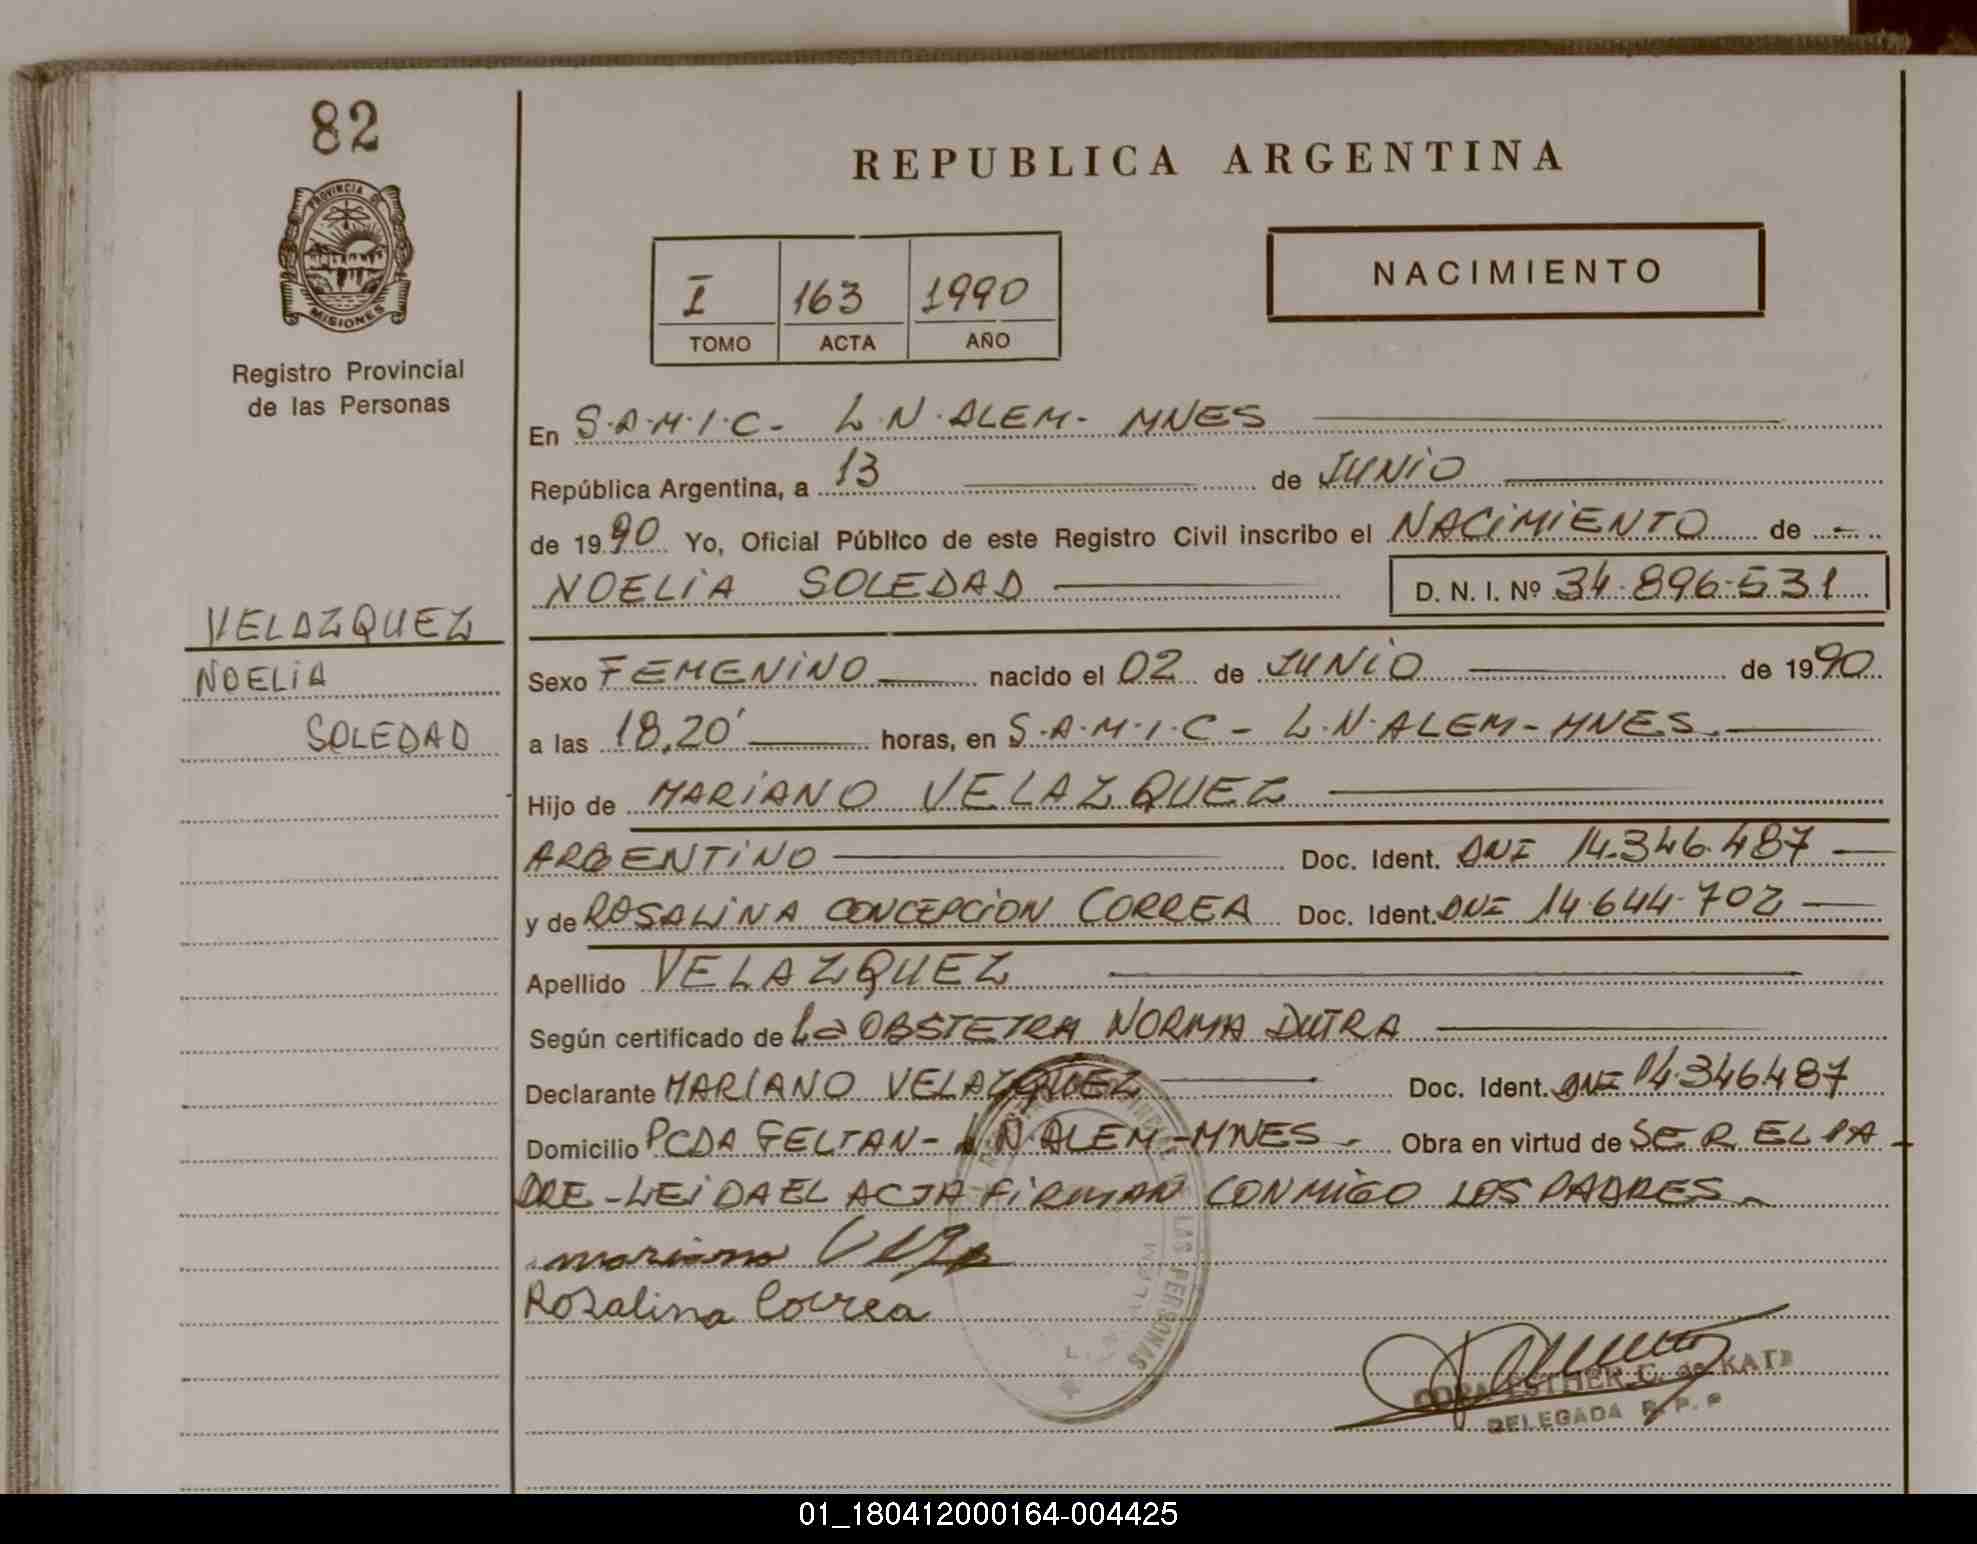 82
PROVINCIA DE
MISIONES
Registro Provincial
de las Personas
VELAZQUEZ
NOELIA
SOLEDAD
REPUBLICA ARGENTINA
I 163 1990
TOMO ACTA AÑO
NACIMIENTO
En S.A.M.I.C- L.N.ALEM- MNES
República Argentina, a 13 de JUNIO
de 1990 Yo, Oficial Público de este Registro Civil inscribo el NACIMIENTO de
NOELIA SOLEDAD D. N. I. Nº 34.896.531
Sexo FEMENINO nacido el 02 de JUNIO de 1990
a las 18,20' horas, en S.A.M.I.C- L.N.ALEM-MNES.
Hijo de MARIANO VELAZQUEZ
ARGENTINO Doc. Ident. DNI 14.346.487
y de ROSALINA CONCEPCION CORREA Doc. Ident. DNI 14.644.702
Apellido VELAZQUEZ
Según certificado de La OBSTETRA NORMA DUTRA
Declarante MARIANO VELAZQUEZ Doc. Ident. DNI 14.346487
Domicilio PCDA GELTAN- L.N.ALEM-MNES- Obra en virtud de SER EL PA-
DRE-LEIDA EL ACTA FIRMAN CONMIGO LOS PADRES-
mariano
Rosalina Correa
LAS PERSONAS
L. N. ALEM
ESTHER C. de KATZ
DELEGADA R. P. P
01_180412000164-004425